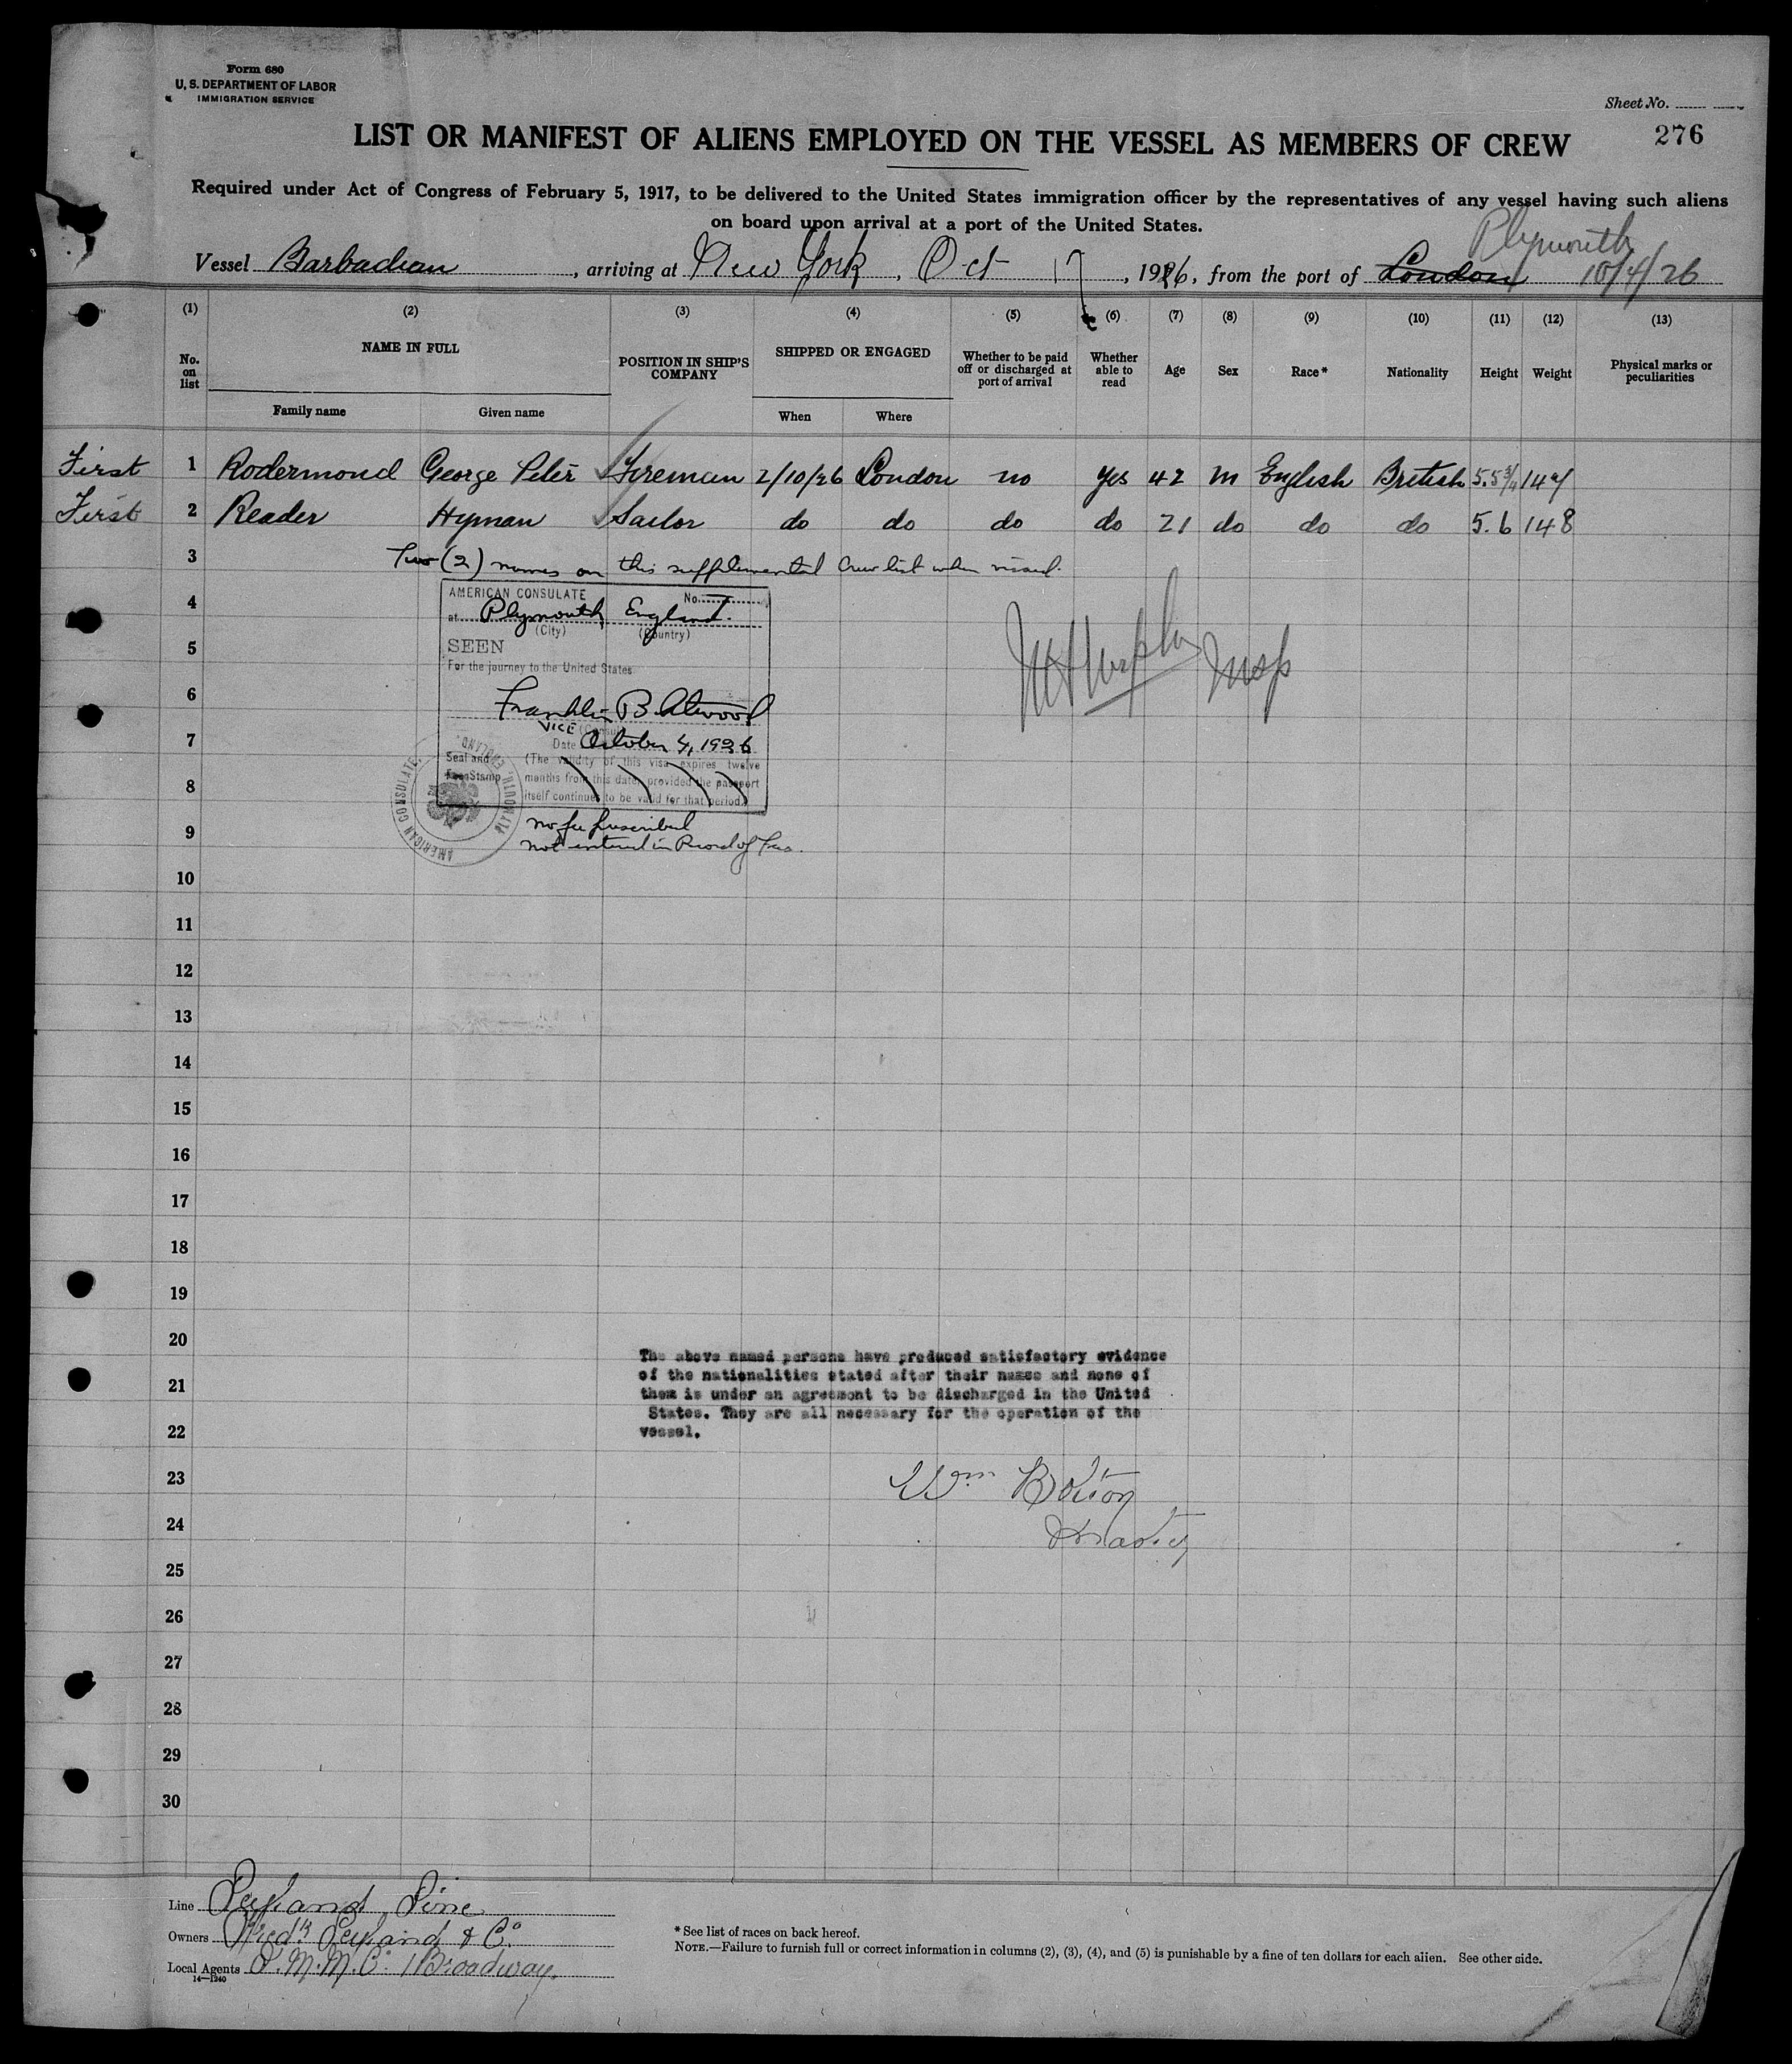 Form 680
U. S. DEPARTMENT OF LABOR
IMMIGRATION SERVICE
Sheet No.
276
LIST OR MANIFEST OF ALIENS EMPLOYED ON THE VESSEL AS MEMBERS OF CREW
Required under Act of Congress of February 5, 1917, to be delivered to the United States immigration officer by the representatives of any vessel having such aliens
on board upon arrival at a port of the United States.
Plymouth
Vessel Barbadian, arriving at New York, Oct 17, 1926, from the port of London 10/4/26
(1) (2) (3) (4) (5) (6) (7) (8) (9) (10) (11) (12) (13)
No. on list NAME IN FULL POSITION IN SHIP'S COMPANY SHIPPED OR ENGAGED Whether to be paid off or discharged at port of arrival Whether able to read Age Sex Race* Nationality Height Weight Physical marks or peculiarities
Family name Given name When Where
First 1 Rodermond George Peter Fireman 2/10/26 London no yes 42 M English British 5.5¾
First 2 Reader Hyman Sailor do do do do 21 do do do 5.6 148
3 Two (2) names on this supplemental crew list when visaed.
4 AMERICAN CONSULATE No.
at Plymouth England.
(City) (Country)
5 SEEN
For the journey to the United States
6
Franklin B. Atwood
VICE
7 Date October 4, 1926
Seal and (The validity of this visa expires twelve
8 Fee Stamp months from this date, provided the passport
itself continues to be valid for that period.)
AMERICAN CONSULATE, PLYMOUTH, ENGLAND.
no fee prescribed
9 not entered in Record of Fees.
Insp
10
11
12
13
14
15
16
17
18
19
20
The above named persons have produced satisfactory evidence
of the nationalities stated after their names and none of
21 them is under an agreement to be discharged in the United
States. They are all necessary for the operation of the
22 vessel.
23 Wm Bolton
24 Master
25
26
27
28
29
30
Line Leyland Line
Owners Fredk Leyland & Co.
Local Agents I.M.M.Co. 1 Broadway.
14—1240
* See list of races on back hereof.
NOTE.—Failure to furnish full or correct information in columns (2), (3), (4), and (5) is punishable by a fine of ten dollars for each alien. See other side.